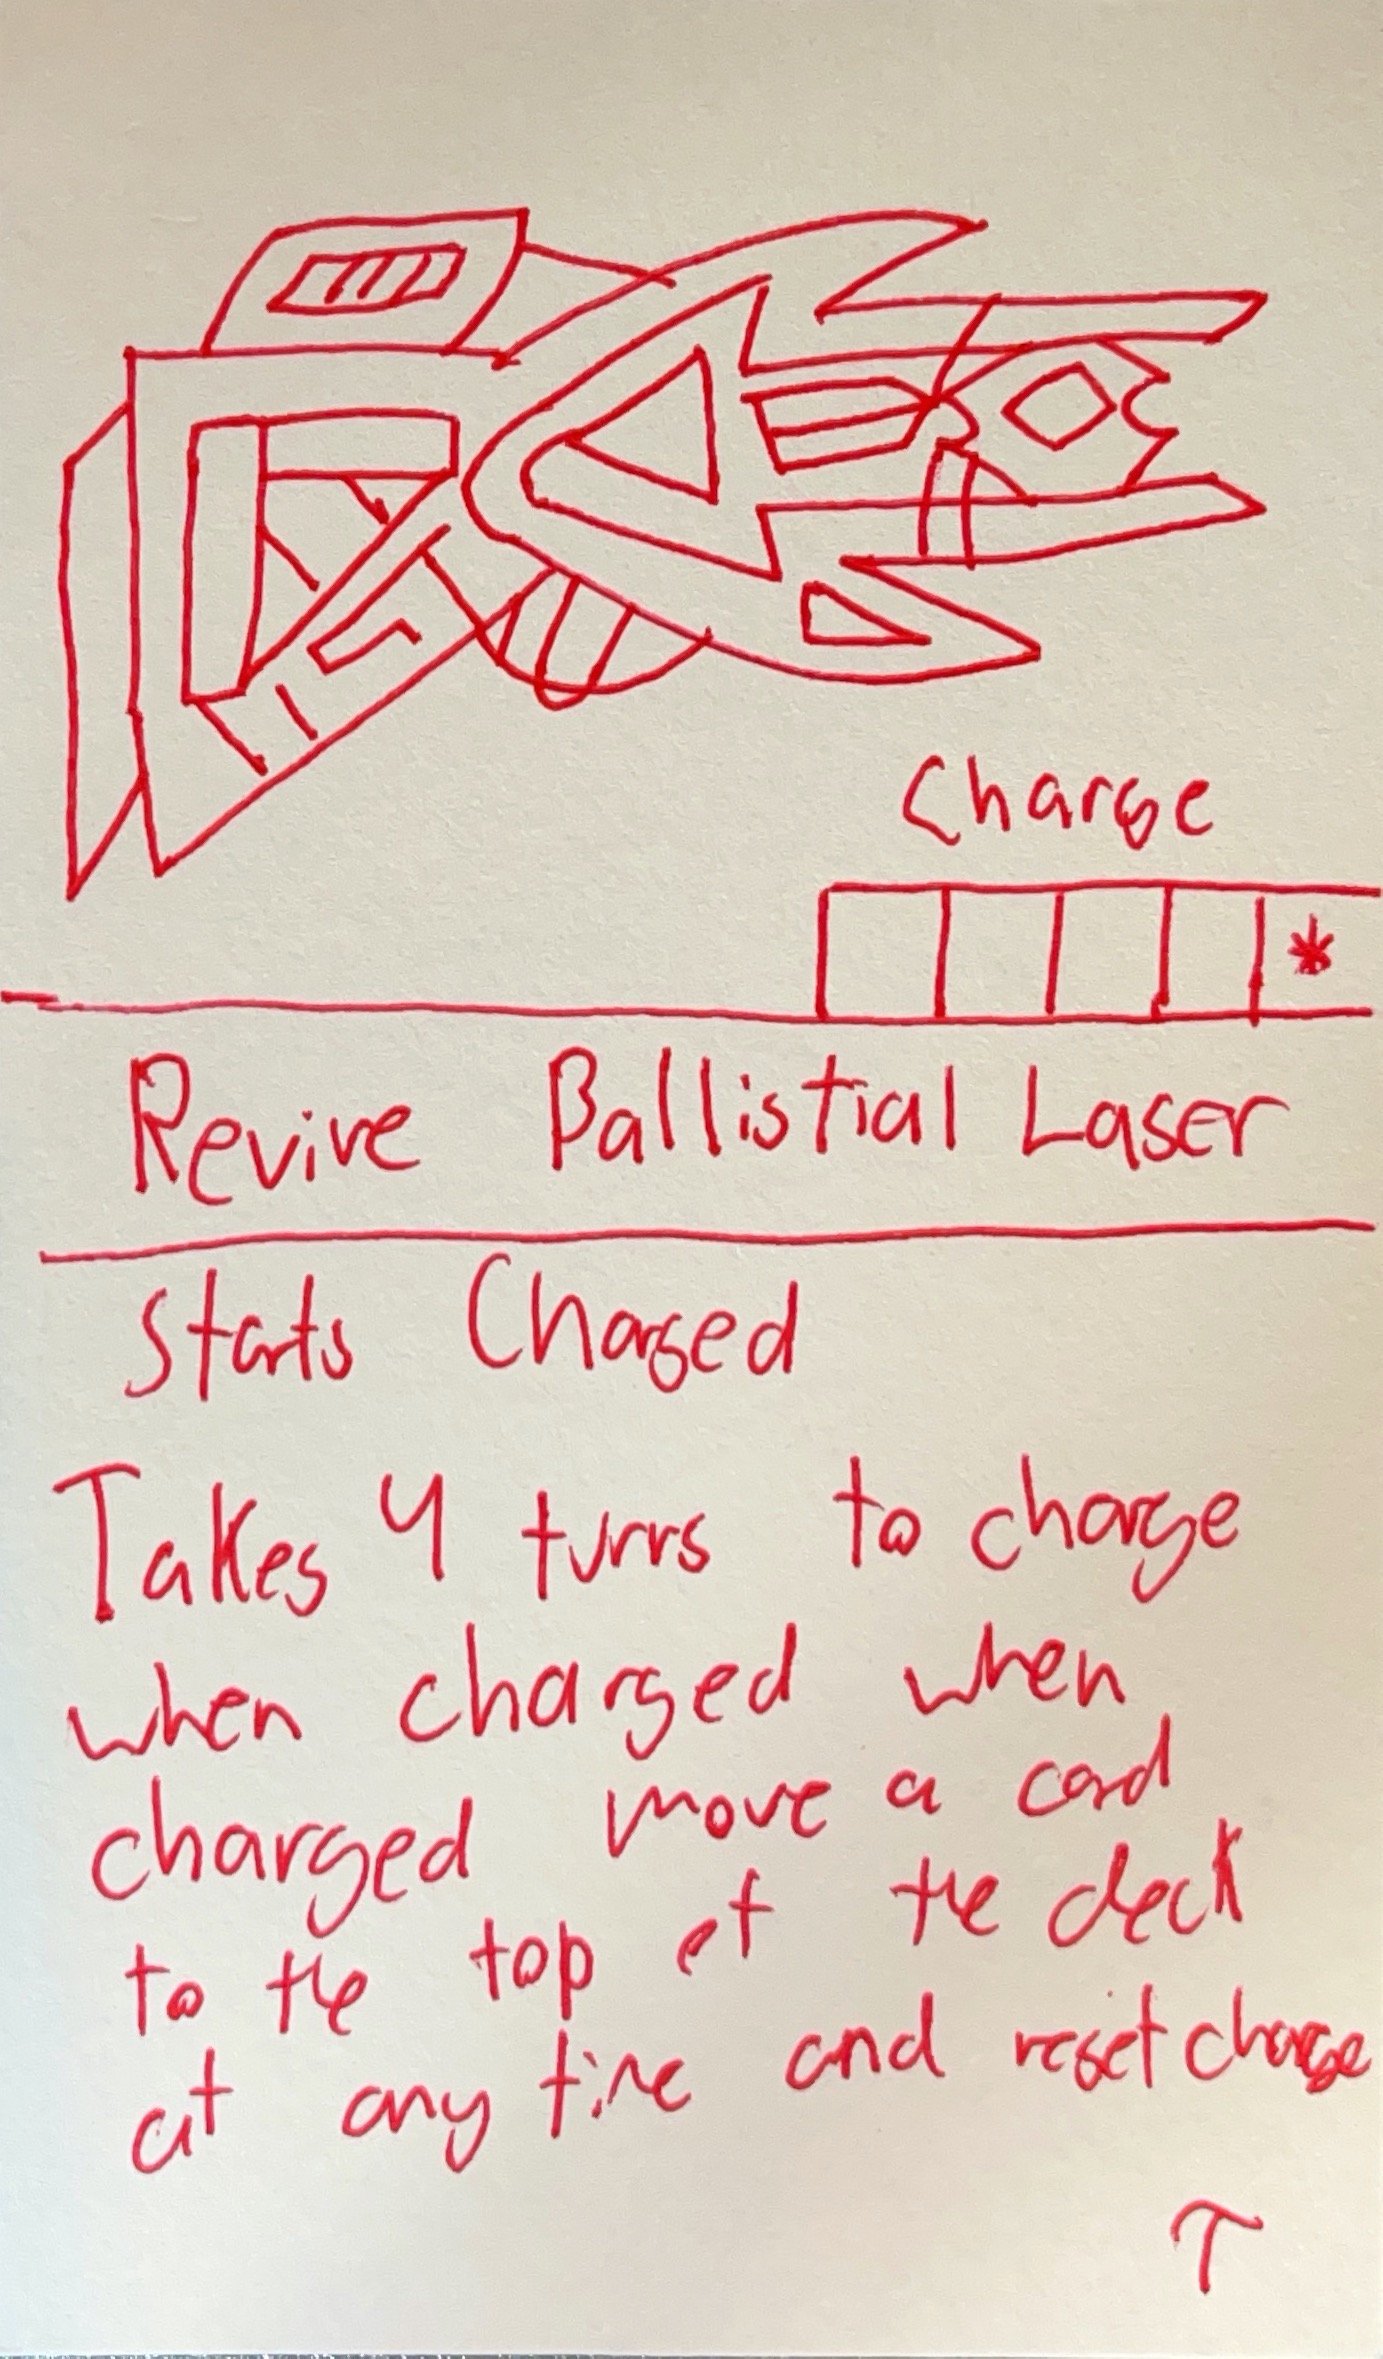 Charge
*
Revive Ballistial Laser
Starts Charged
Takes 4 turns to charge
when charged when
charged move a card
to the top of the deck
at any time and reset charge
T